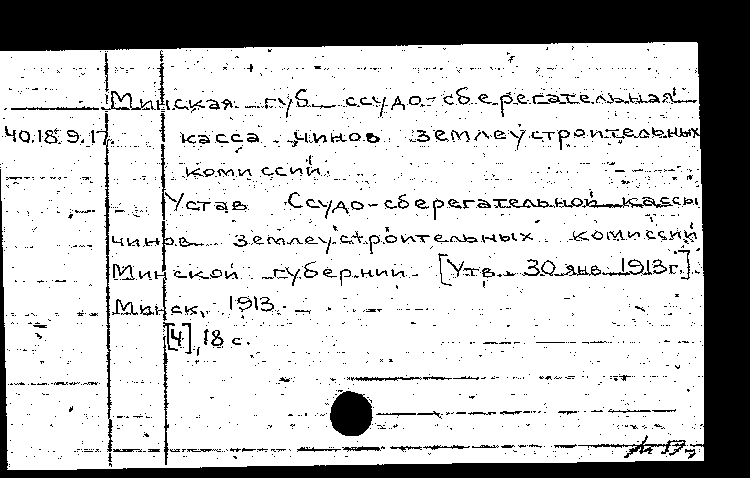 Минская губ. ссудо-сберегательная
40.18.9.17. касса чинов землеустроительных
комиссий.
Устав Ссудо-сберегательной кассы
чинов землеустроительных комиссий
Минской губернии. [Утв. 30 янв. 1913г.]
Минск, 1913.
[4], 18 с.